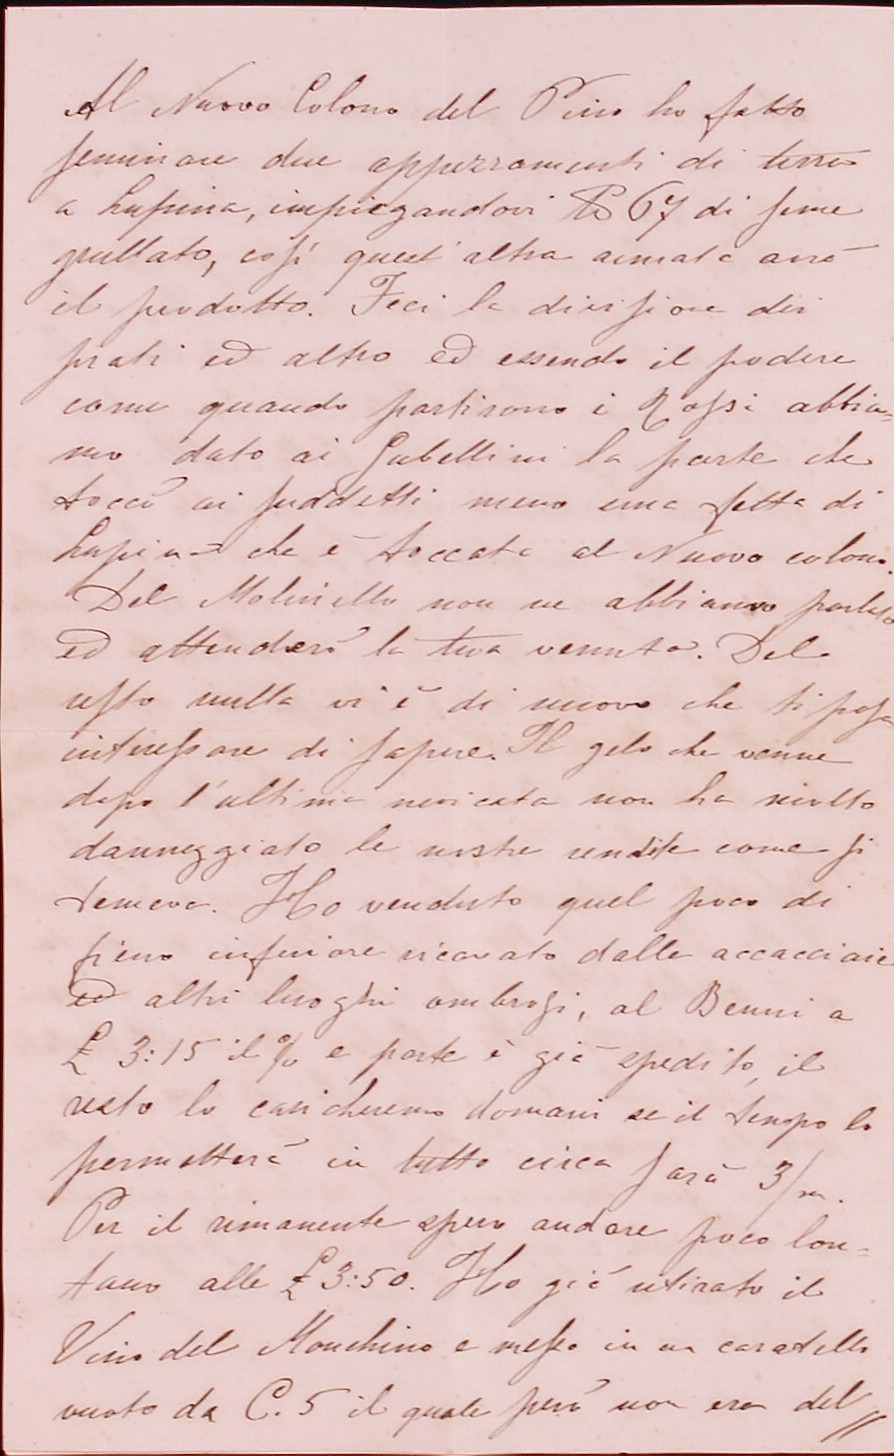 Al Nuovo Colono del Pino ho fatto
seminare due appezzamenti di terra
a Lupina, impiegandovi 67 di seme
grullato, così quest'altra annata avrà
il prodotto. Feci la divisione dei
prati ed altro ed essendo il podere
come quando partirono i Rossi abbia=
mo dato ai Gabellini la parte che
toccò ai suddetti meno una fetta di
Lupina che è toccata al Nuovo colono.
Del Molinello non ne abbiamo parlato
ed attenderò la tua venuta. Del
resto nulla vi è di nuovo che ti possa
interessare di sapere. Il gelo che venne
dopo l'ultima nevicata non ha molto
danneggiato le nostre rendite come si
temeva. Ho venduto quel poco di
fieno inferiore ricavato dalle accacciaie
ed altri luoghi ombrosi, al Benni a
£ 3:15 il % e parte è già spedito, il
resto lo caricheremo domani se il tempo lo
permetterà in tutto circa sarà 3/m.
Per il rimanente spero andare poco lon=
tano alle £ 3:50. Ho già ritirato il
Vino del Monchino e messo in un caratello
vuoto da C. 5 il quale però non era del